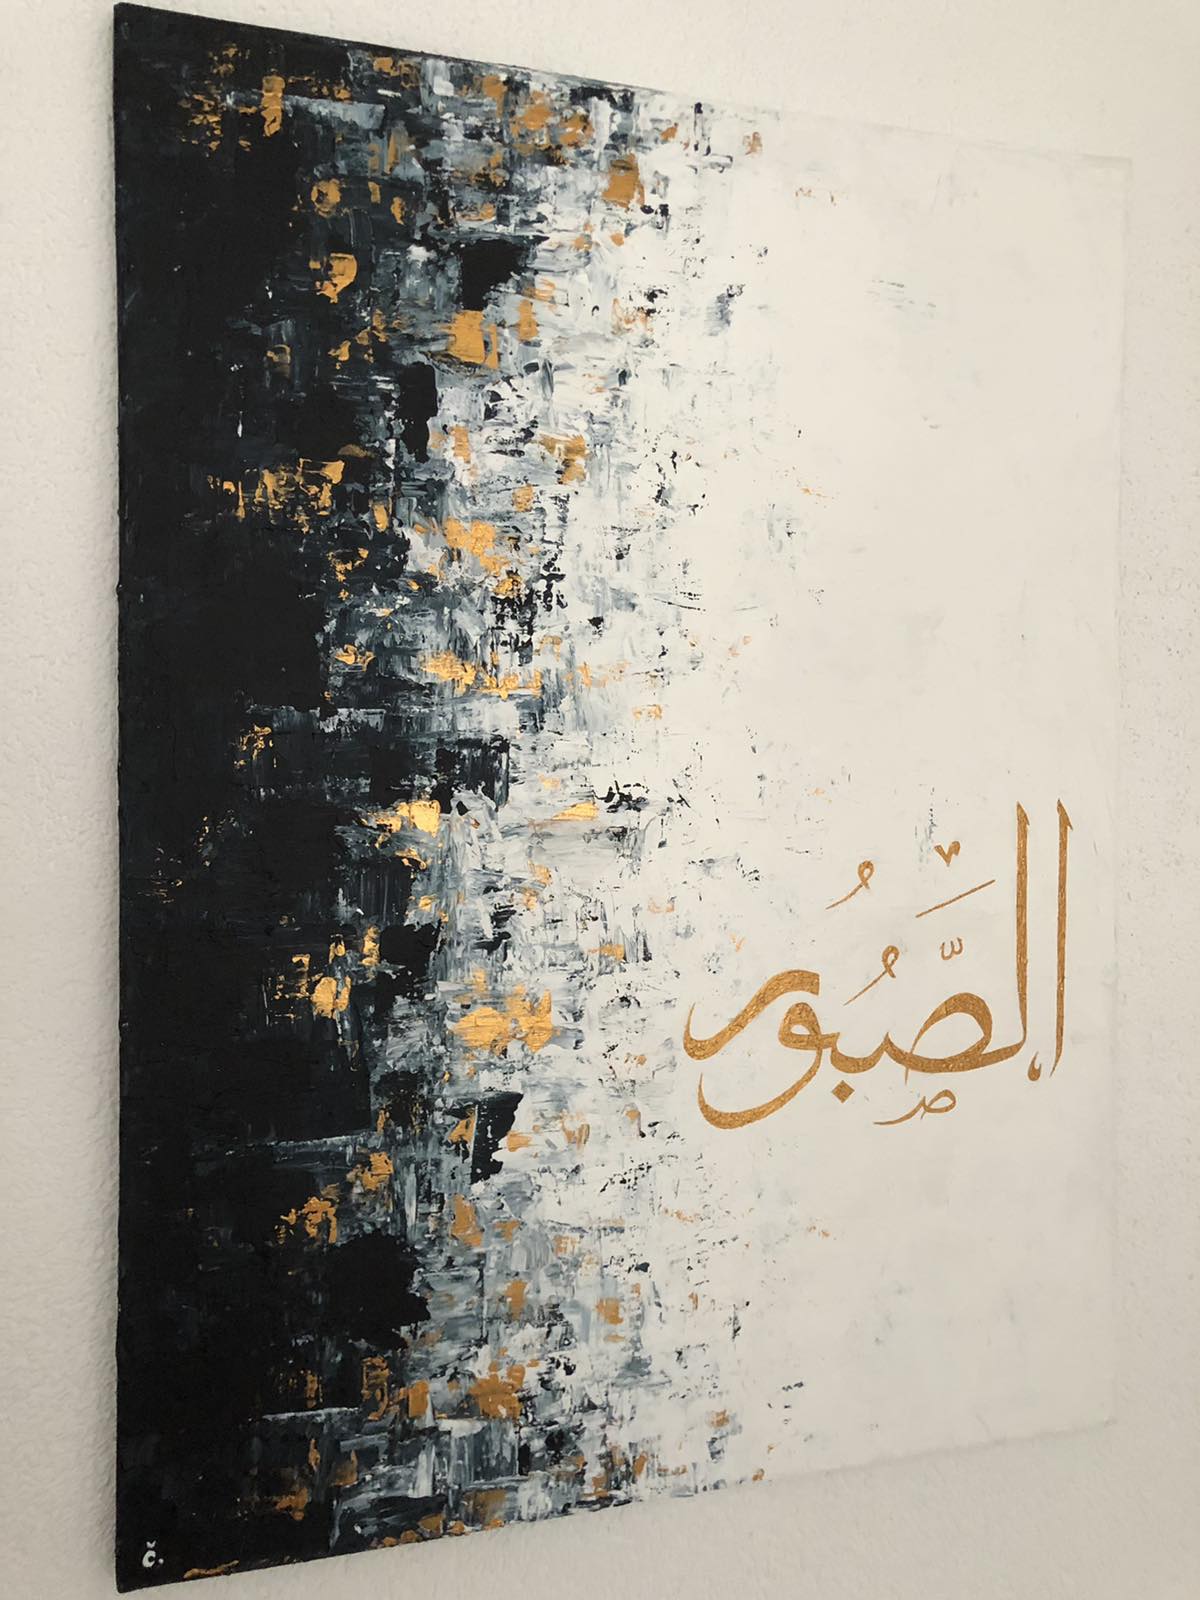 الصَّبُور
č.